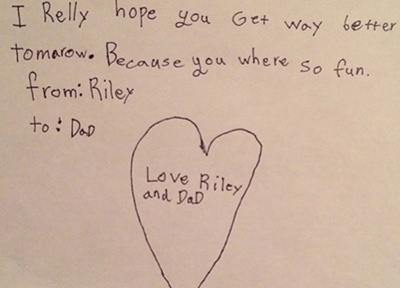 I Relly hope you Get way better
tomarow. Because you where so fun.
from: Riley
to: DaD
Love Riley
and DaD